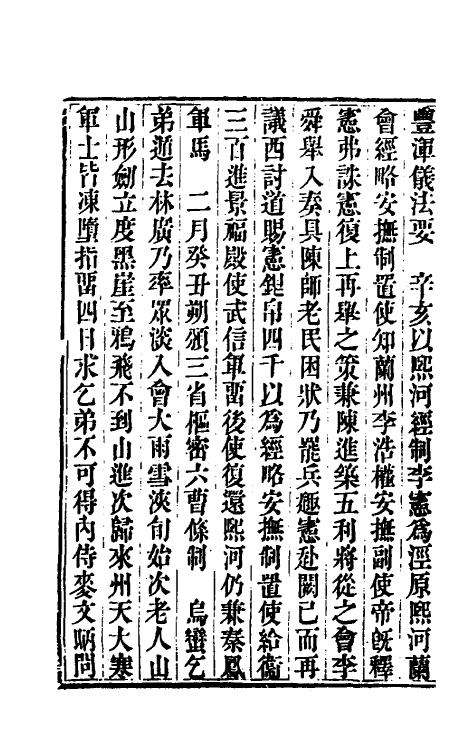 豐渾儀法要　辛亥以熙河經制李憲爲涇原熙河蘭
會經略安撫制置使知蘭州李浩權安撫副使帝旣釋
憲弗誅憲復上再舉之策兼陳進築五利將從之會李
舜舉入奏具陳師老民困狀乃罷兵趣憲赴闕已而再
議西討道賜憲銀帛四千以爲經略安撫制置使給衞
三百進景福殿使武信軍留後使復還熙河仍兼秦鳳
軍馬　二月癸丑朔頒三省樞密六曹條制　烏蠻乞
弟遁去林廣乃率眾深入會大雨雪浹旬始次老人山
山形劍立度黑崖至鴉飛不到山進次歸來州天大寒
軍士皆凍墮指留四日求乞弟不可得內侍麥文昞問